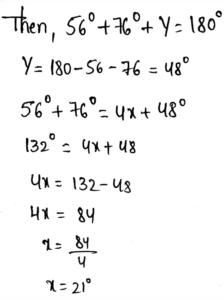 Then, 56°+76°+Y=180°
Y=180-56-76=48°
56°+76°=4x+48°
132°=4x+48
4x=132-48
4x=84
x=84/4
x=21°